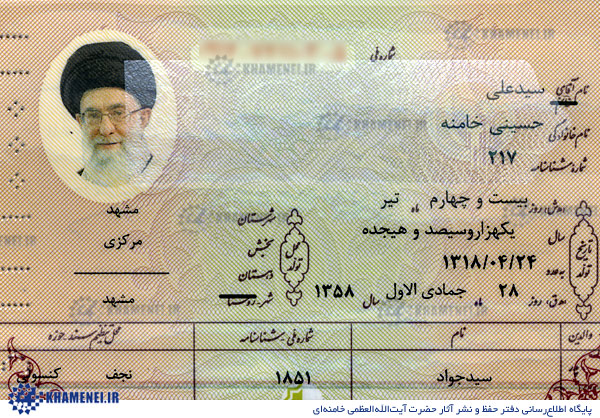 شماره ملی
KHAMENEI.IR
نام آقای سیدعلی
نام خانوادگی حسینی خامنه
شماره شناسنامه ۲۱۷
روز بیست و چهارم ماه تیر
سال یکهزاروسیصد و هیجده
به عدد ۱۳۱۸/۰۴/۲۴
روز ۲۸ ماه جمادی الاول سال ۱۳۵۸
تاریخ تولد
محل تولد
شهرستان مشهد
بخش مرکزی
دهستان
شهر روستا مشهد
والدین نام شماره ملی شناسنامه محل تنظیم سند حوزه
سیدجواد ۱۸۵۱ نجف کنسولی
KHAMENEI.IR
پایگاه اطلاع‌رسانی دفتر حفظ و نشر آثار حضرت آیت‌الله‌العظمی خامنه‌ای